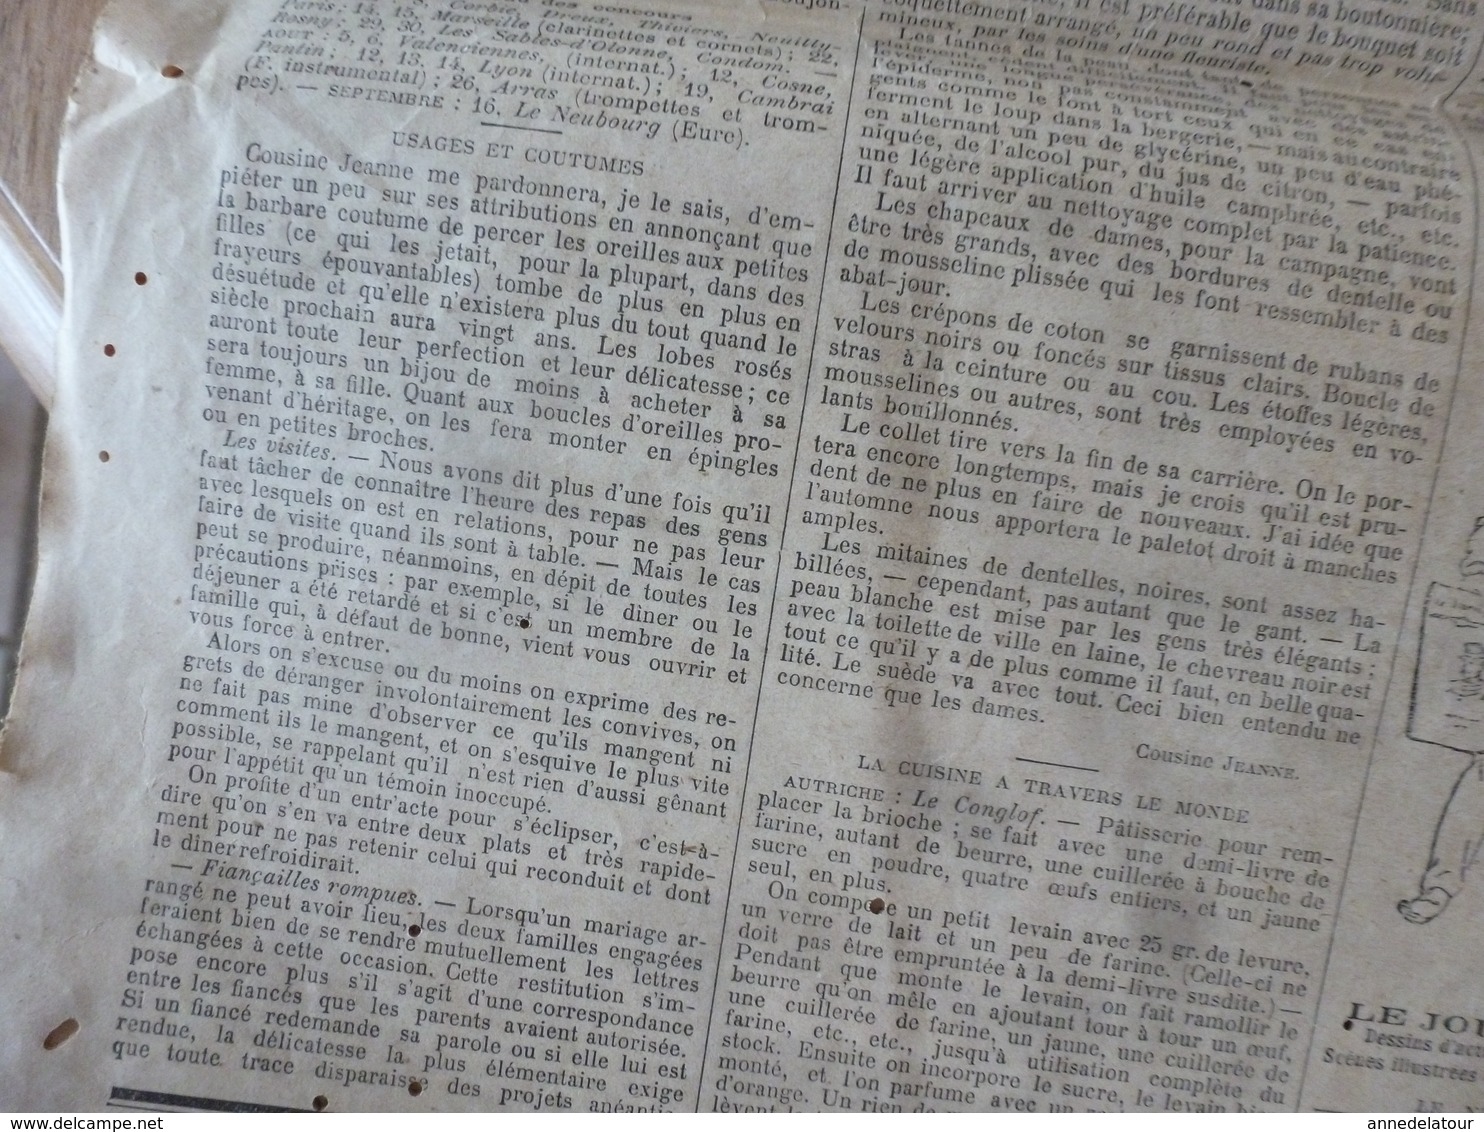 Paris: 14, 15, Corbie, Dreux, Thiviers, Neuilly-
Rosny: 29, 30, Marseille (clarinettes et cornets); 22,
Les Sables-d'Olonne, Condom. —
AOUT : 5, 6, Valenciennes, (internat.); 12, Cosne,
Pantin; 12, 13, 14, Lyon (internat.); 19, Cambrai
(F. instrumental); 26, Arras (trompettes et trom-
pes). — SEPTEMBRE : 16, Le Neubourg (Eure).
USAGES ET COUTUMES
Cousine Jeanne me pardonnera, je le sais, d'em-
piéter un peu sur ses attributions en annonçant que
la barbare coutume de percer les oreilles aux petites
filles (ce qui les jetait, pour la plupart, dans des
frayeurs épouvantables) tombe de plus en plus en
désuétude et qu'elle n'existera plus du tout quand le
siècle prochain aura vingt ans. Les lobes rosés
auront toute leur perfection et leur délicatesse; ce
sera toujours un bijou de moins à acheter à sa
femme, à sa fille. Quant aux boucles d'oreilles pro-
venant d'héritage, on les fera monter en épingles
ou en petites broches.
Les visites. — Nous avons dit plus d'une fois qu'il
faut tâcher de connaître l'heure des repas des gens
avec lesquels on est en relations, pour ne pas leur
faire de visite quand ils sont à table. — Mais le cas
peut se produire, néanmoins, en dépit de toutes les
précautions prises : par exemple, si le dîner ou le
déjeuner a été retardé et si c'est un membre de la
famille qui, à défaut de bonne, vient vous ouvrir et
vous force à entrer.
Alors on s'excuse ou du moins on exprime des re-
grets de déranger involontairement les convives, on
ne fait pas mine d'observer ce qu'ils mangent ni
comment ils le mangent, et on s'esquive le plus vite
possible, se rappelant qu'il n'est rien d'aussi gênant
pour l'appétit qu'un témoin inoccupé.
On profite d'un entr'acte pour s'éclipser, c'est-à-
dire qu'on s'en va entre deux plats et très rapide-
ment pour ne pas retenir celui qui reconduit et dont
le dîner refroidirait.
— Fiançailles rompues. — Lorsqu'un mariage ar-
rangé ne peut avoir lieu, les deux familles engagées
feraient bien de se rendre mutuellement les lettres
échangées à cette occasion. Cette restitution s'im-
pose encore plus s'il s'agit d'une correspondance
entre les fiancés que les parents avaient autorisée.
Si un fiancé redemande sa parole ou si elle lui est
rendue, la délicatesse la plus élémentaire exige
que toute trace disparaisse des projets anéantis
dans sa boutonnière;
il est préférable que le bouquet soit
coquettement arrangé, un peu rond et pas trop volu-
mineux, par les soins d'une fleuriste.
Les tannes de la peau, dont tant de personnes se
l'épiderme, non pas constamment avec des astrin-
gents comme le font à tort ceux qui en ce cas en-
ferment le loup dans la bergerie, — mais au contraire
en alternant un peu de glycérine, un peu d'eau phé-
niquée, de l'alcool pur, du jus de citron, — parfois
une légère application d'huile camphrée, etc., etc.
Il faut arriver au nettoyage complet par la patience.
Les chapeaux de dames, pour la campagne, vont
être très grands, avec des bordures de dentelle ou
de mousseline plissée qui les font ressembler à des
abat-jour.
Les crépons de coton se garnissent de rubans de
velours noirs ou foncés sur tissus clairs. Boucle de
stras à la ceinture ou au cou. Les étoffes légères,
mousselines ou autres, sont très employées en vo-
lants bouillonnés.
Le collet tire vers la fin de sa carrière. On le por-
tera encore longtemps, mais je crois qu'il est pru-
dent de ne plus en faire de nouveaux. J'ai idée que
l'automne nous apportera le paletot droit à manches
amples.
Les mitaines de dentelles, noires, sont assez ha-
billées, — cependant, pas autant que le gant. — La
peau blanche est mise par les gens très élégants ;
avec la toilette de ville en laine, le chevreau noir est
tout ce qu'il y a de plus comme il faut, en belle qua-
lité. Le suède va avec tout. Ceci bien entendu ne
concerne que les dames.
Cousine JEANNE.
LA CUISINE A TRAVERS LE MONDE
AUTRICHE : Le Conglof. — Pâtisserie pour rem-
placer la brioche ; se fait avec une demi-livre de
farine, autant de beurre, une cuillerée à bouche de
sucre en poudre, quatre œufs entiers, et un jaune
seul, en plus.
On compose un petit levain avec 25 gr. de levure,
un verre de lait et un peu de farine. (Celle-ci ne
doit pas être empruntée à la demi-livre susdite.)—
Pendant que monte le levain, on fait ramollir le
beurre qu'on mêle en ajoutant tour à tour un œuf,
une cuillerée de farine, un jaune, une cuillerée de
farine, etc., etc., jusqu'à utilisation complète du
stock. Ensuite on incorpore le sucre, le levain
monté, et l'on parfume avec un
d'orange. Un rien de
lèvent
LE JO
Dessins d'act
Scènes illustrées
www.delcampe.net
annedelatour